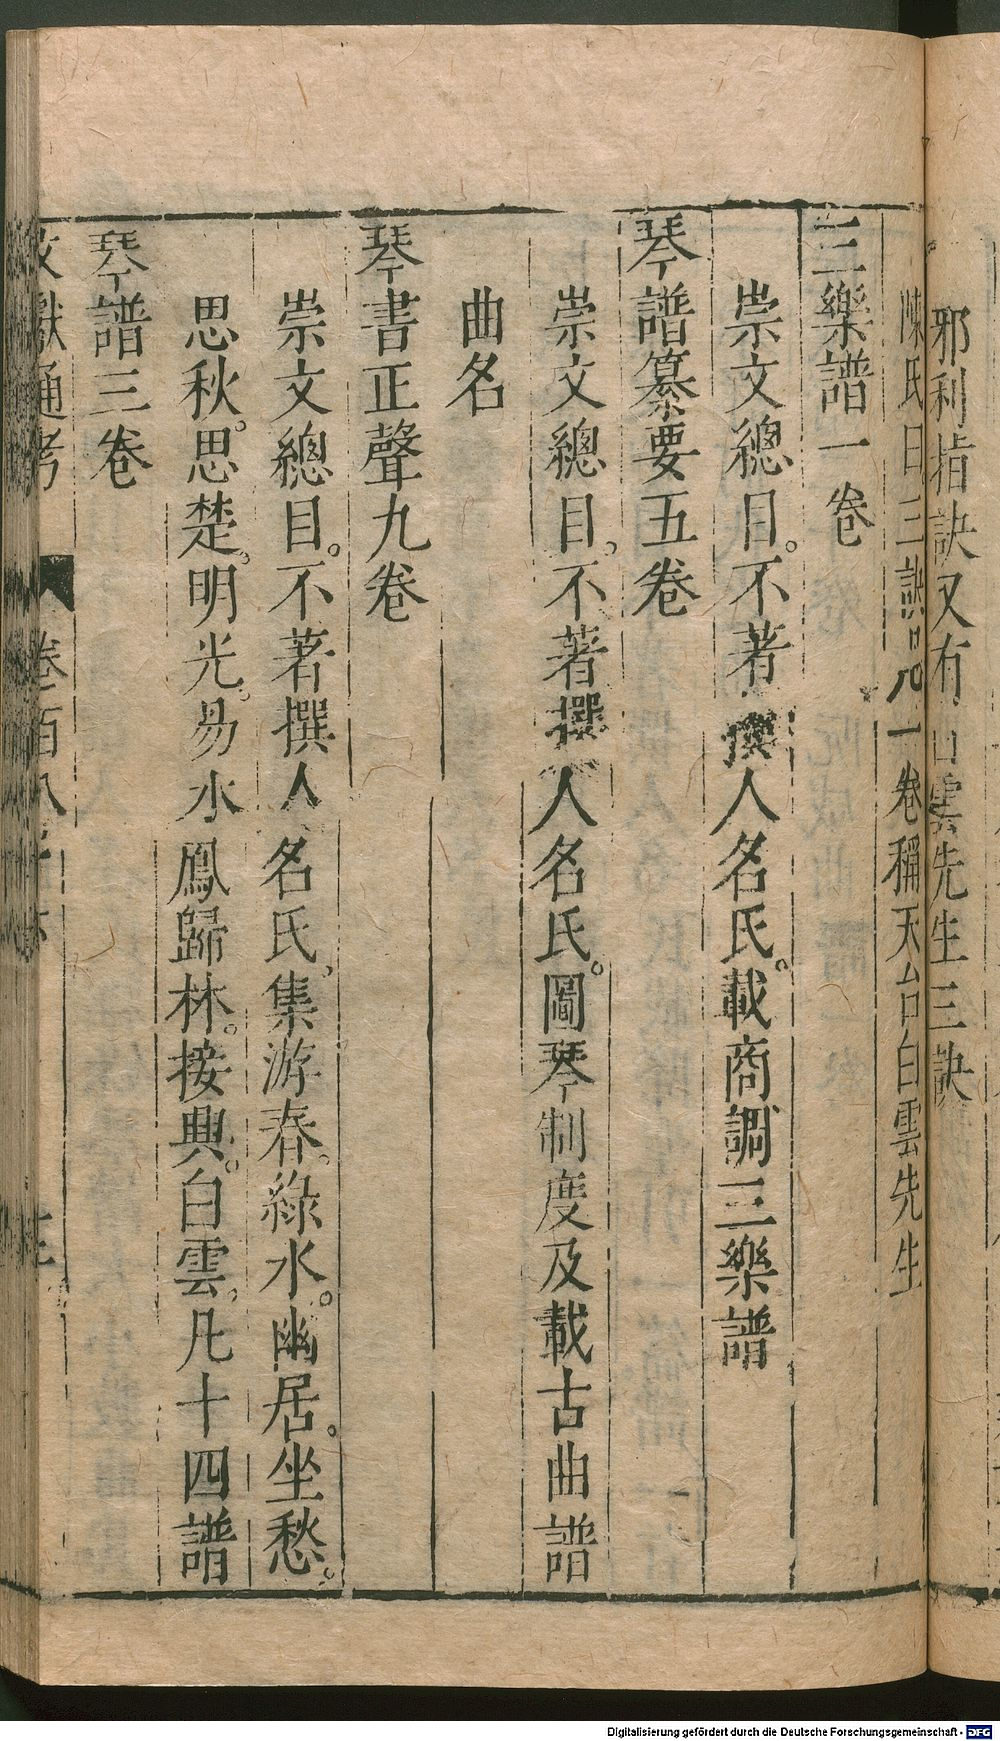 邪利指訣又有白雲先生三訣
陳氏曰三訣
一卷稱天台白雲先生
三樂譜一卷
崇文總目。不著撰人名氏。載商調三樂譜
琴譜纂要五卷
崇文總目。不著撰人名氏。圖琴制度及載古曲譜
曲名
琴書正聲九卷
崇文總目。不著撰人名氏。集游春。綠水。幽居。坐愁。
思秋。思楚。明光。易水鳳歸林。接輿。白雲。凡十四譜
琴譜三卷
文獻通考 卷百八十六
Digitalisierung gefördert durch die Deutsche Forschungsgemeinschaft - DFG